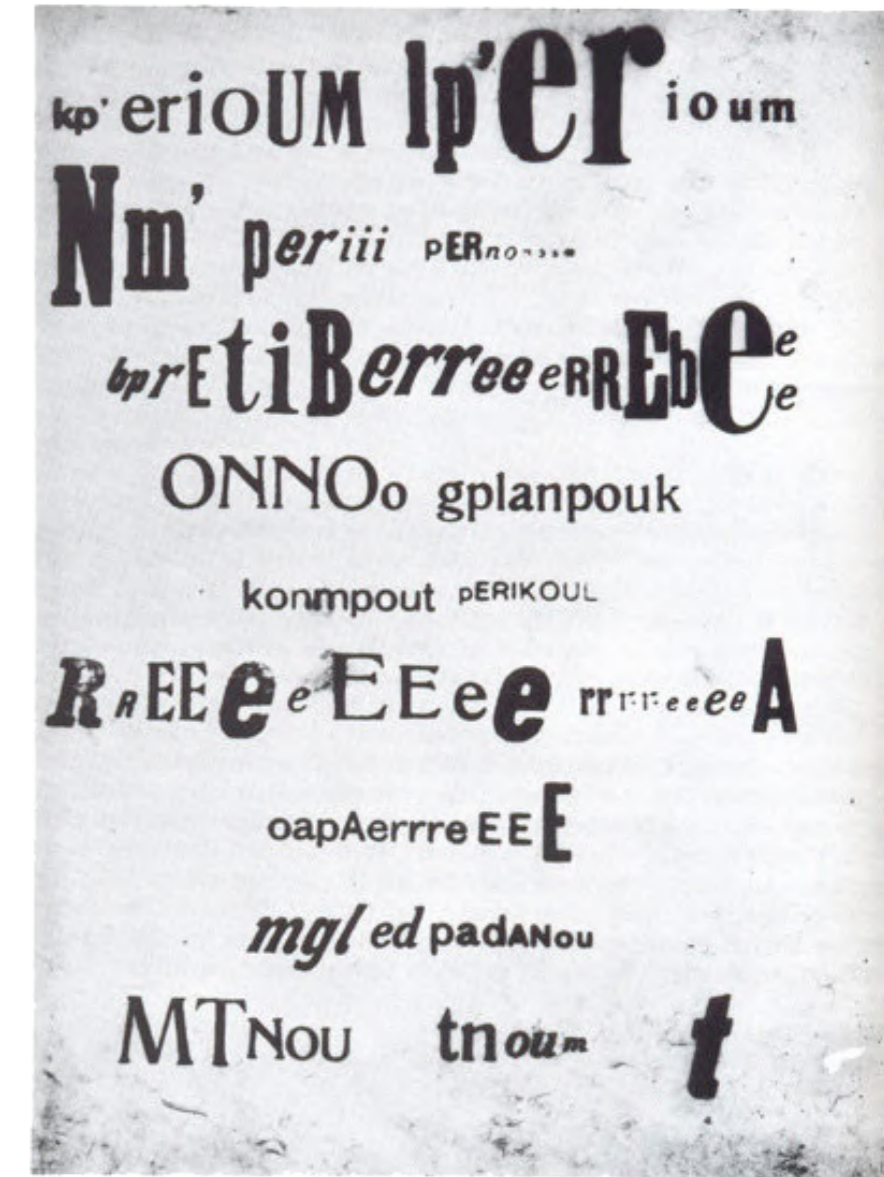 kp' erioUM lp'er ioum
Nm' periii pERno
bprEtiBerreeeRREbeee
ONNOo gplanpouk
konmpout pERIKOUL
RREEeeEEee rrrreeeeA
oapAerrreEEE
mgl ed padANou
MTNou tnoum t